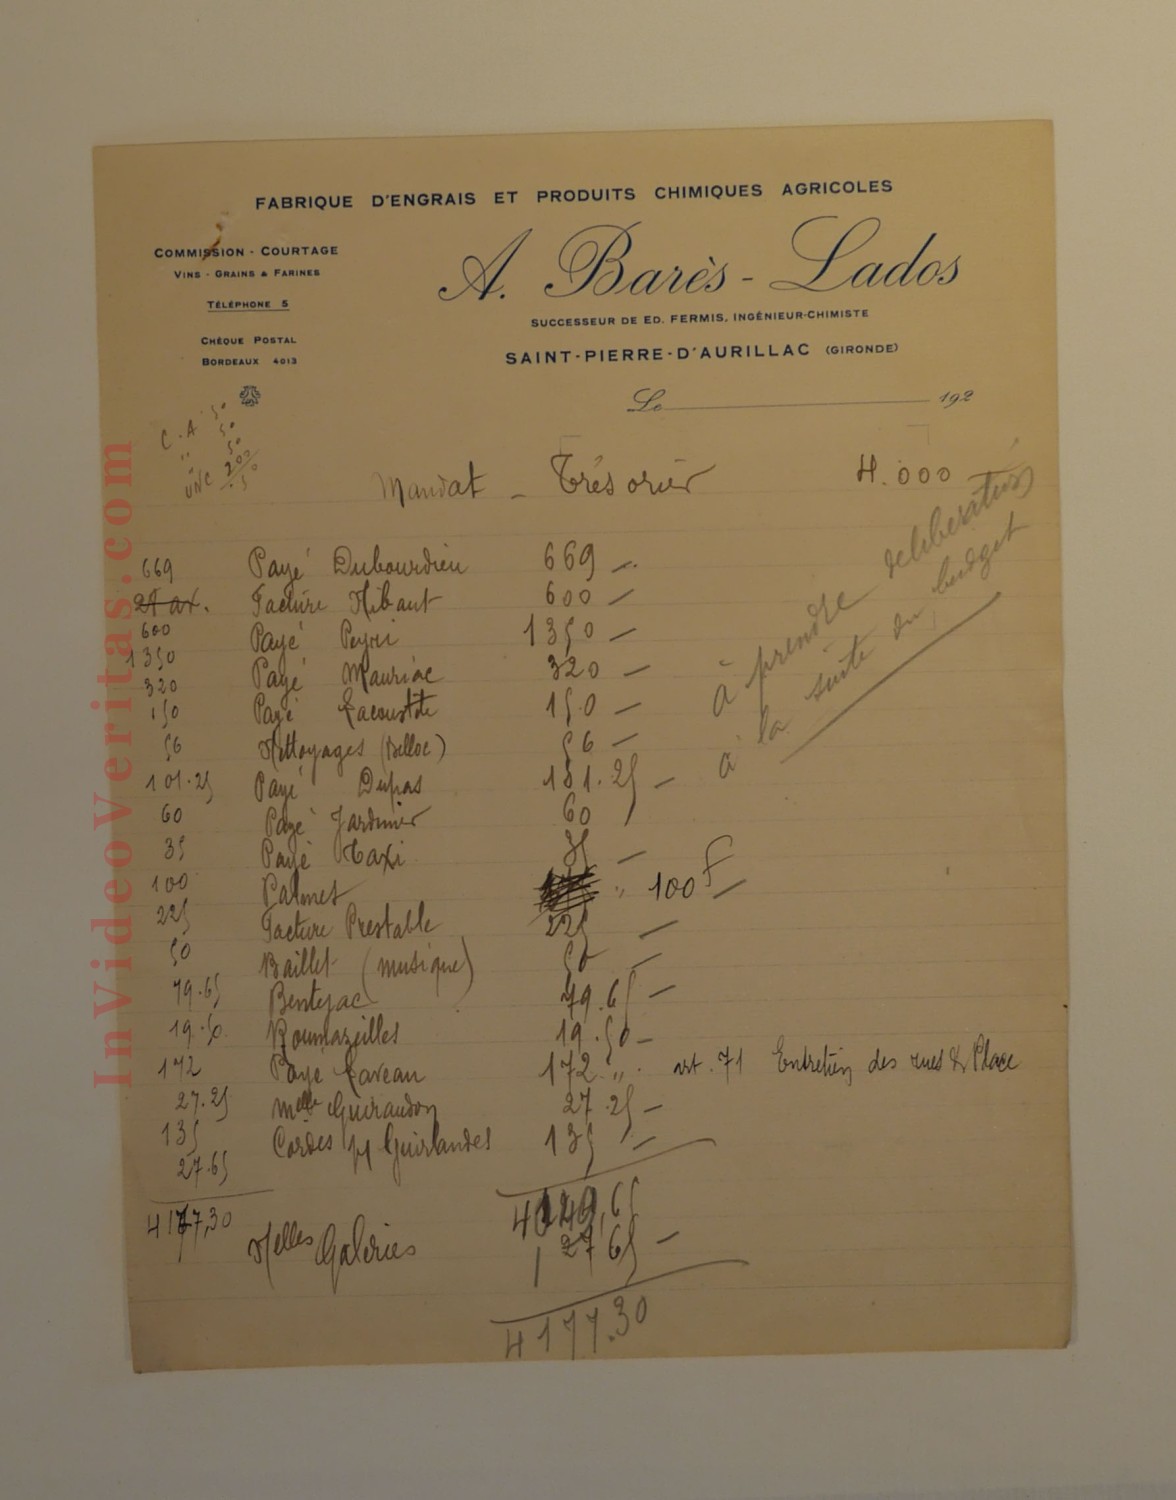 FABRIQUE D'ENGRAIS ET PRODUITS CHIMIQUES AGRICOLES
COMMISSION - COURTAGE
VINS - GRAINS & FARINES
TÉLÉPHONE 5
CHÈQUE POSTAL
BORDEAUX 4013
A. Barès - Lados
SUCCESSEUR DE ED. FERMIS, INGÉNIEUR-CHIMISTE
SAINT-PIERRE-D'AURILLAC (GIRONDE)
Le 192
C.A 50
" 50
" 50
UNC 200
Mandat - Trésorier 4.000
à prendre
à la suite du budget
669 Payé Dubourdieu 669 -
600 Facture 600 -
1350 Payé Peyri 1350 -
320 Payé Mauriac 320 -
150 Payé Lacoustte 150 -
56 Nettoyages (Belloc) 56 -
101.25 Payé Dupas 101.25 -
60 Payé Jardinier 60
35 Payé Taxi 35 -
100 Palmet " 100 F -
225 Facture Prestable 225 -
50 Baillet (musique) 50 -
79.65 Bentejac 79.65 -
19.50 Roumazeilles 19.50 -
172 Payé Laveau 172 " . art. 71 Entretien des rues & Place
27.25 Melle Guiraudon 27.25 -
135 Cordes pr Guirlandes 135 -
27.65
4177,30 Nelles Galeries 27,65 -
4177.30
InVideoVeritas.com